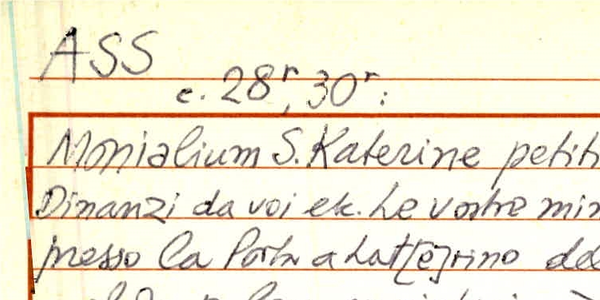 ASS
c. 28r, 30r:
Monialium S. Katerine petiti
Dinanzi da voi etc. Le vostre min
presso la Porta a Lat[e]rino del